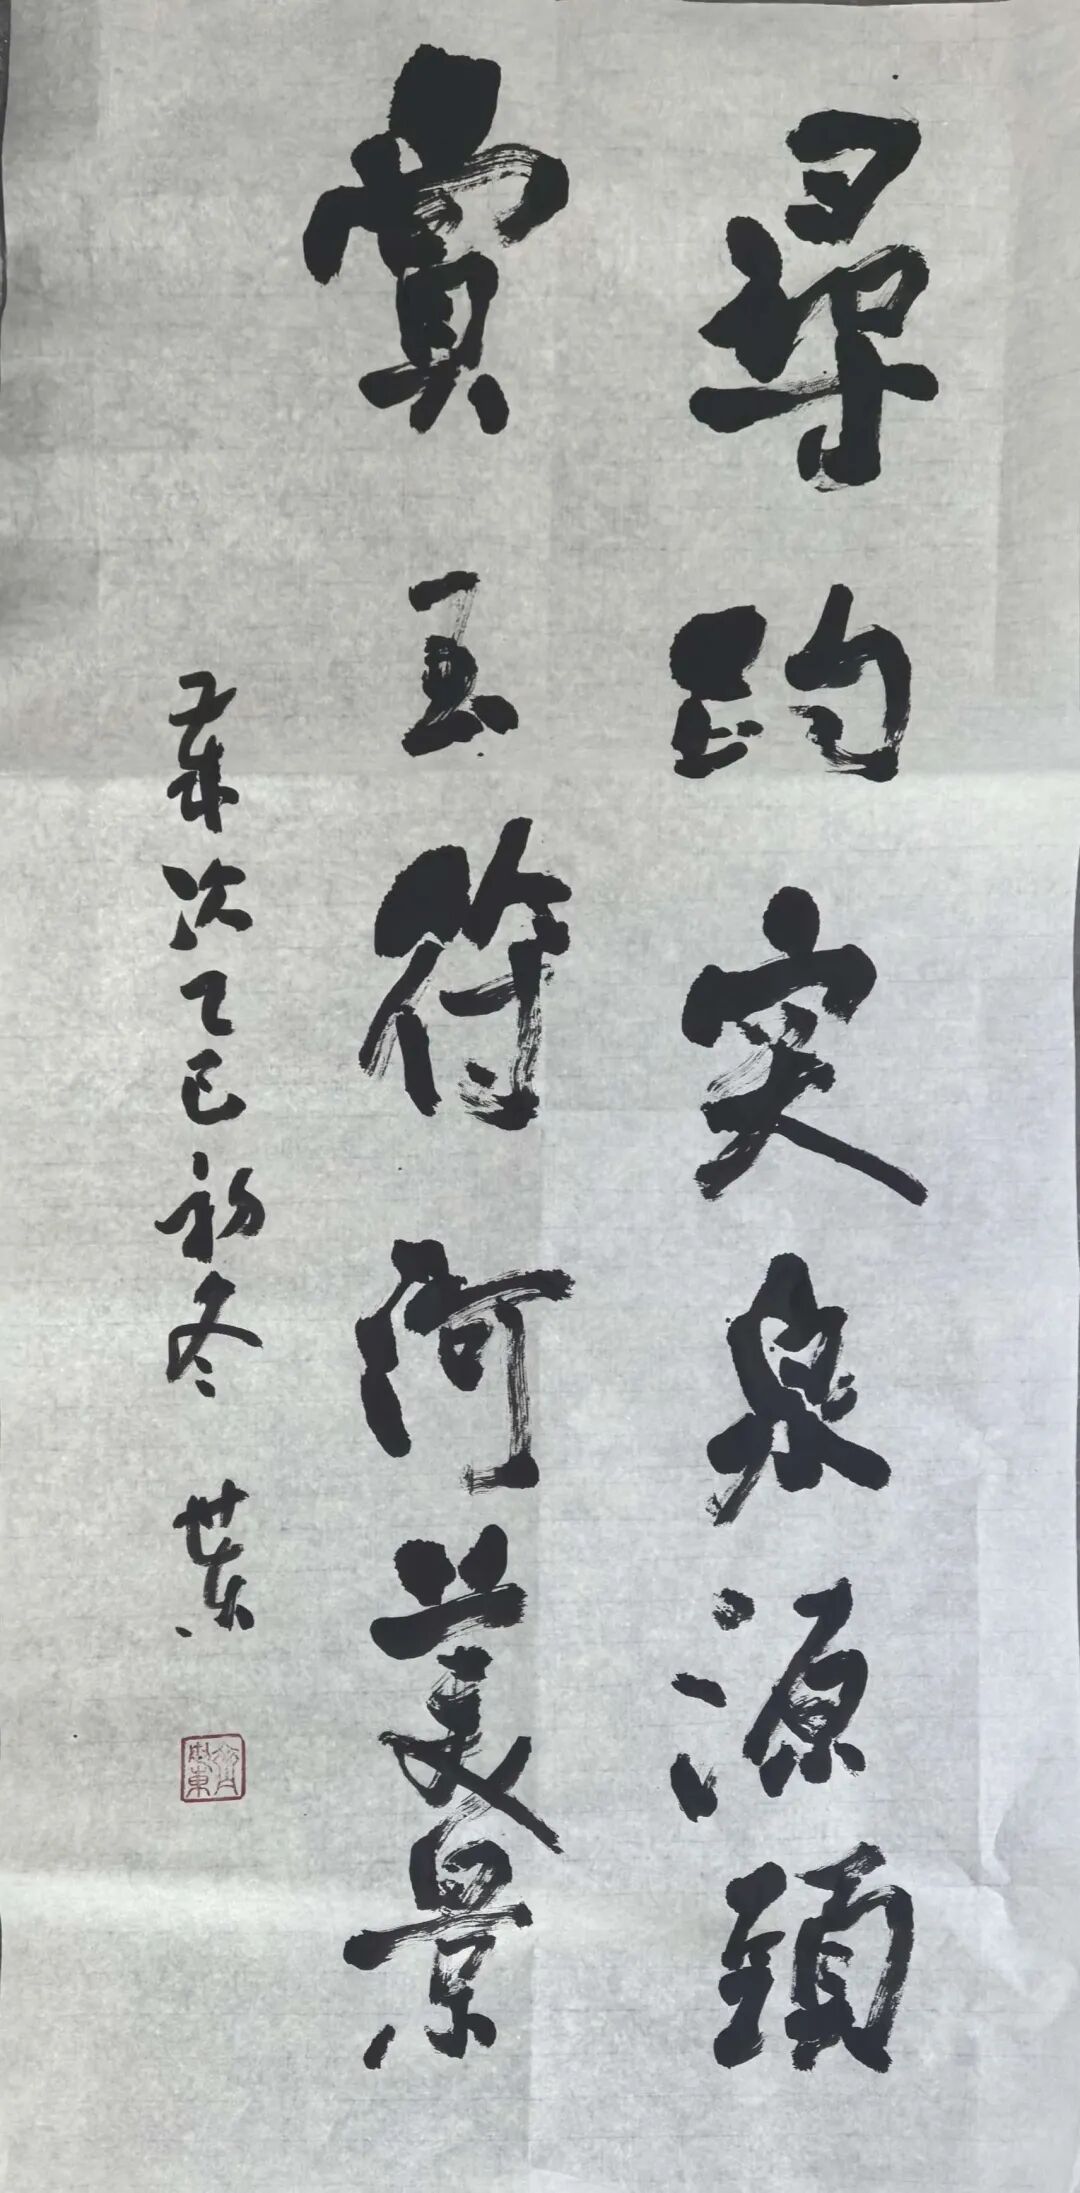 尋趵突泉源頭
賞玉符河美景
歲次乙巳初冬 世東